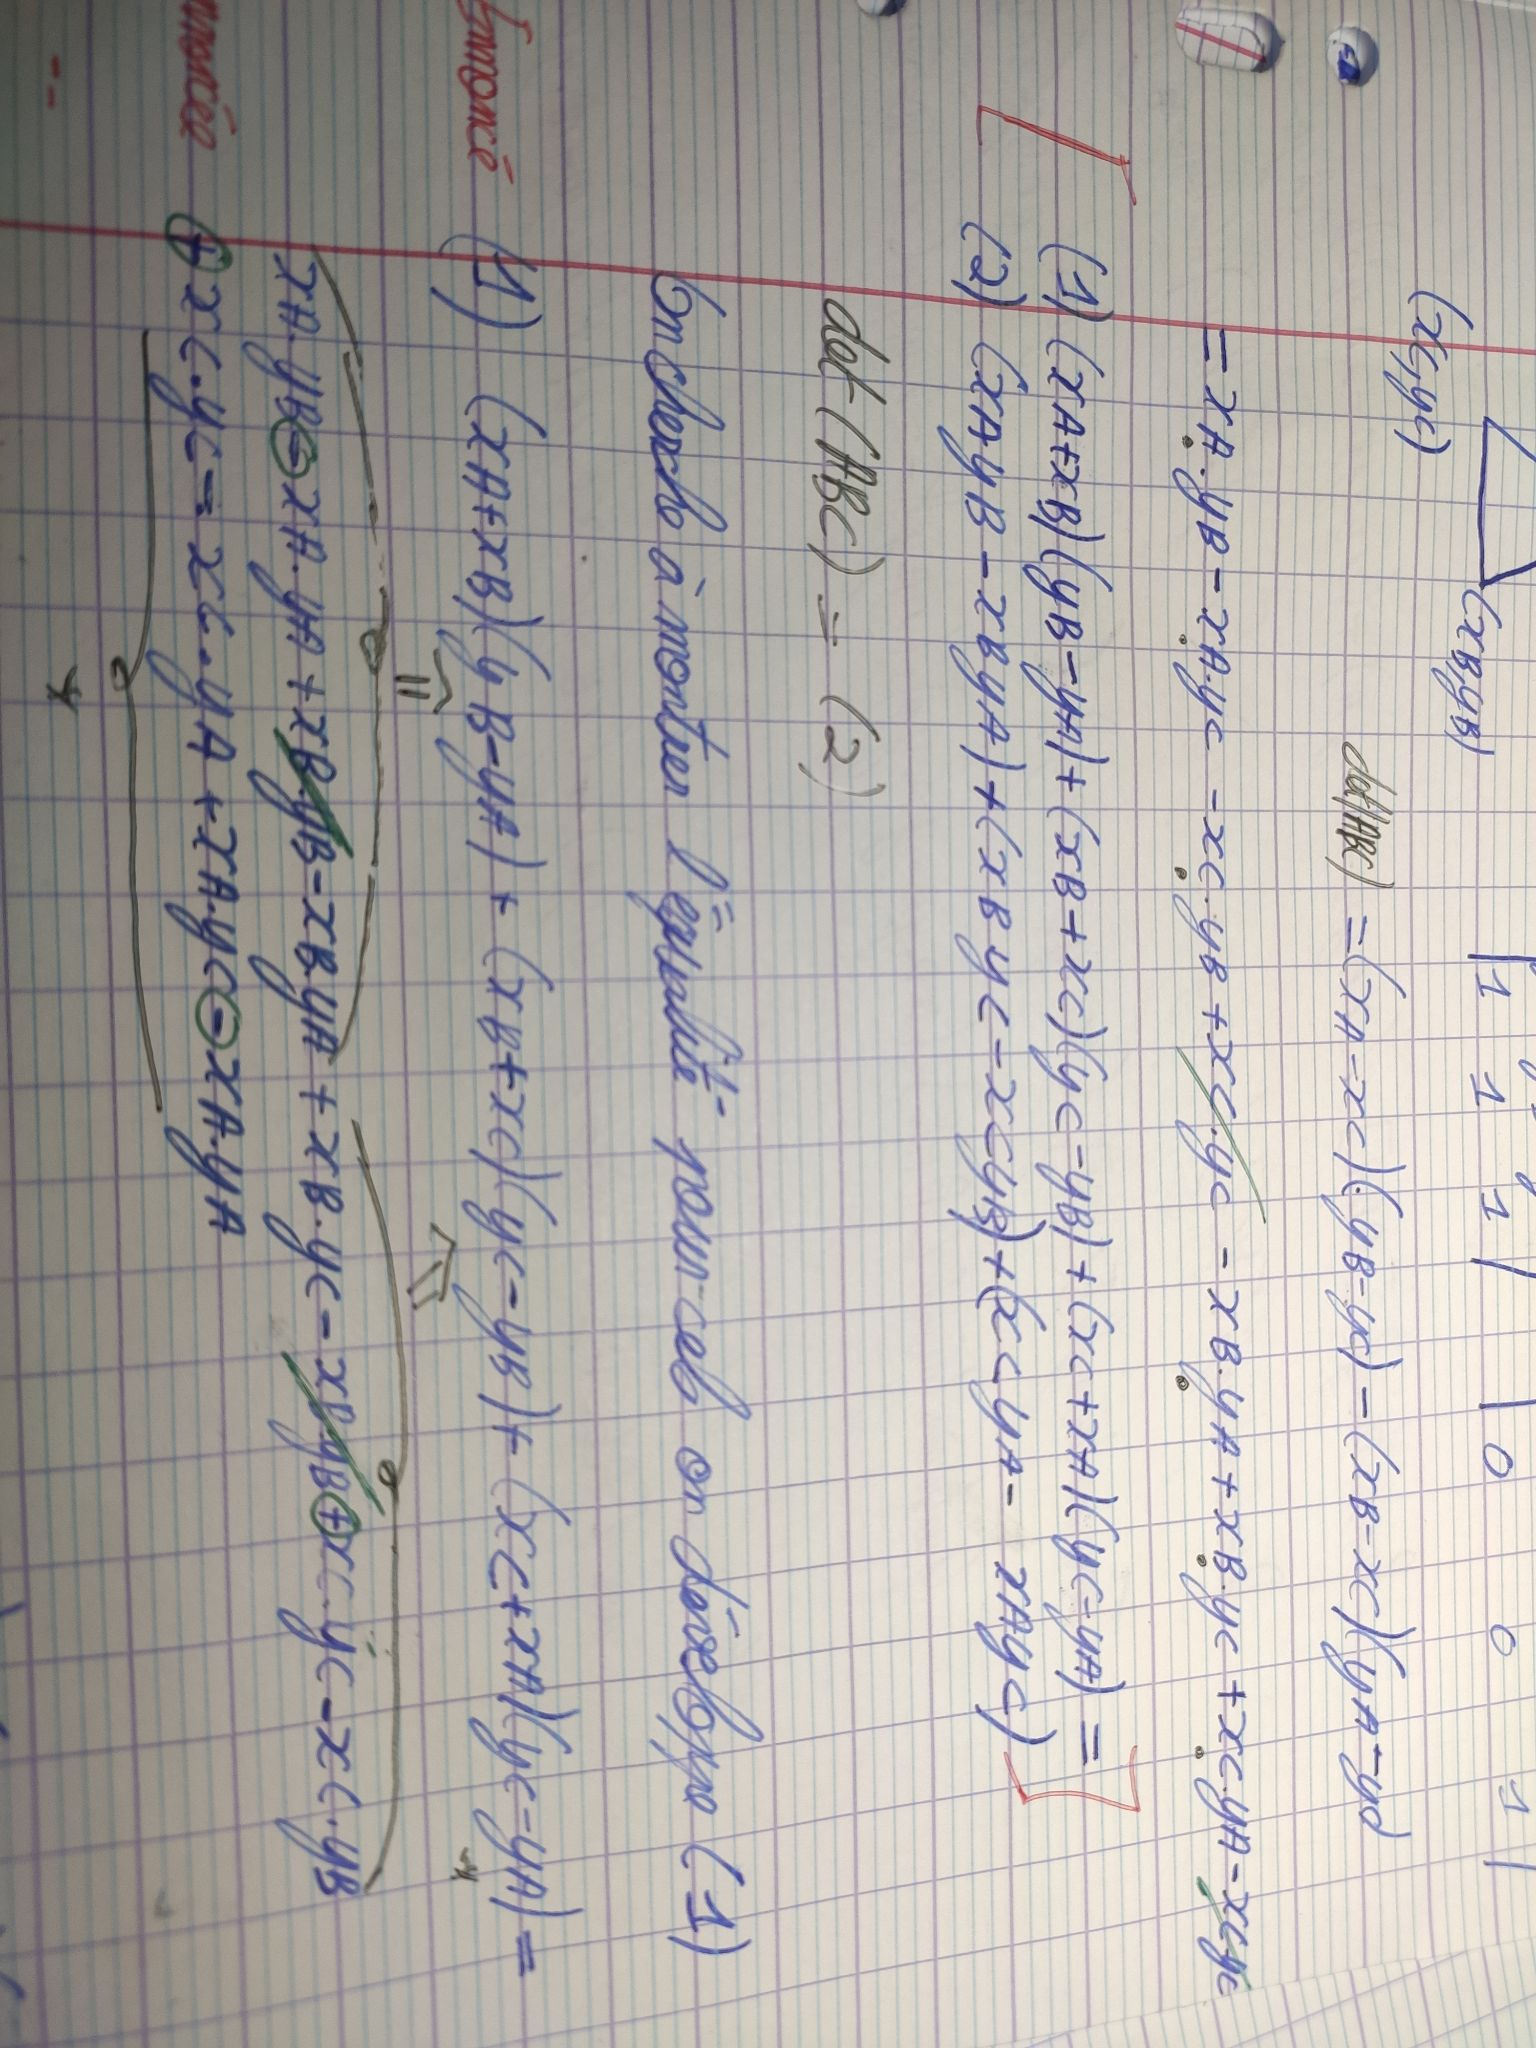 (xc,yc) (xB,yB)
1 1 1 0 0 1
det(ABC) = (xA-xc)(yB-yc) - (xB-xc)(yA-yc)
= xA.yB - xA.yc - xc.yB + xc.yc - xB.yA + xB.yc + xc.yA - xc yc
(1) (xA+xB)(yB-yA) + (xB+xc)(yc-yB) + (xc+xA)(yc-yA) =
(2) (xAyB - xByA) + (xByc - xcyB) + (xcyA - xAyc)
det(ABC) = (2)
On cherche à montrer l'égalité pour cela on développe (1)
Énoncé (1) (xA+xB)(yB-yA) + (xB+xc)(yc-yB) + (xc+xA)(yc-yA) =
xA.yB - xA.yA + xB.yB - xB.yA + xB.yc - xB.yB + xc.yc - xc.yB
+ xc.yc = xc.yA + xA.yc - xA.yA